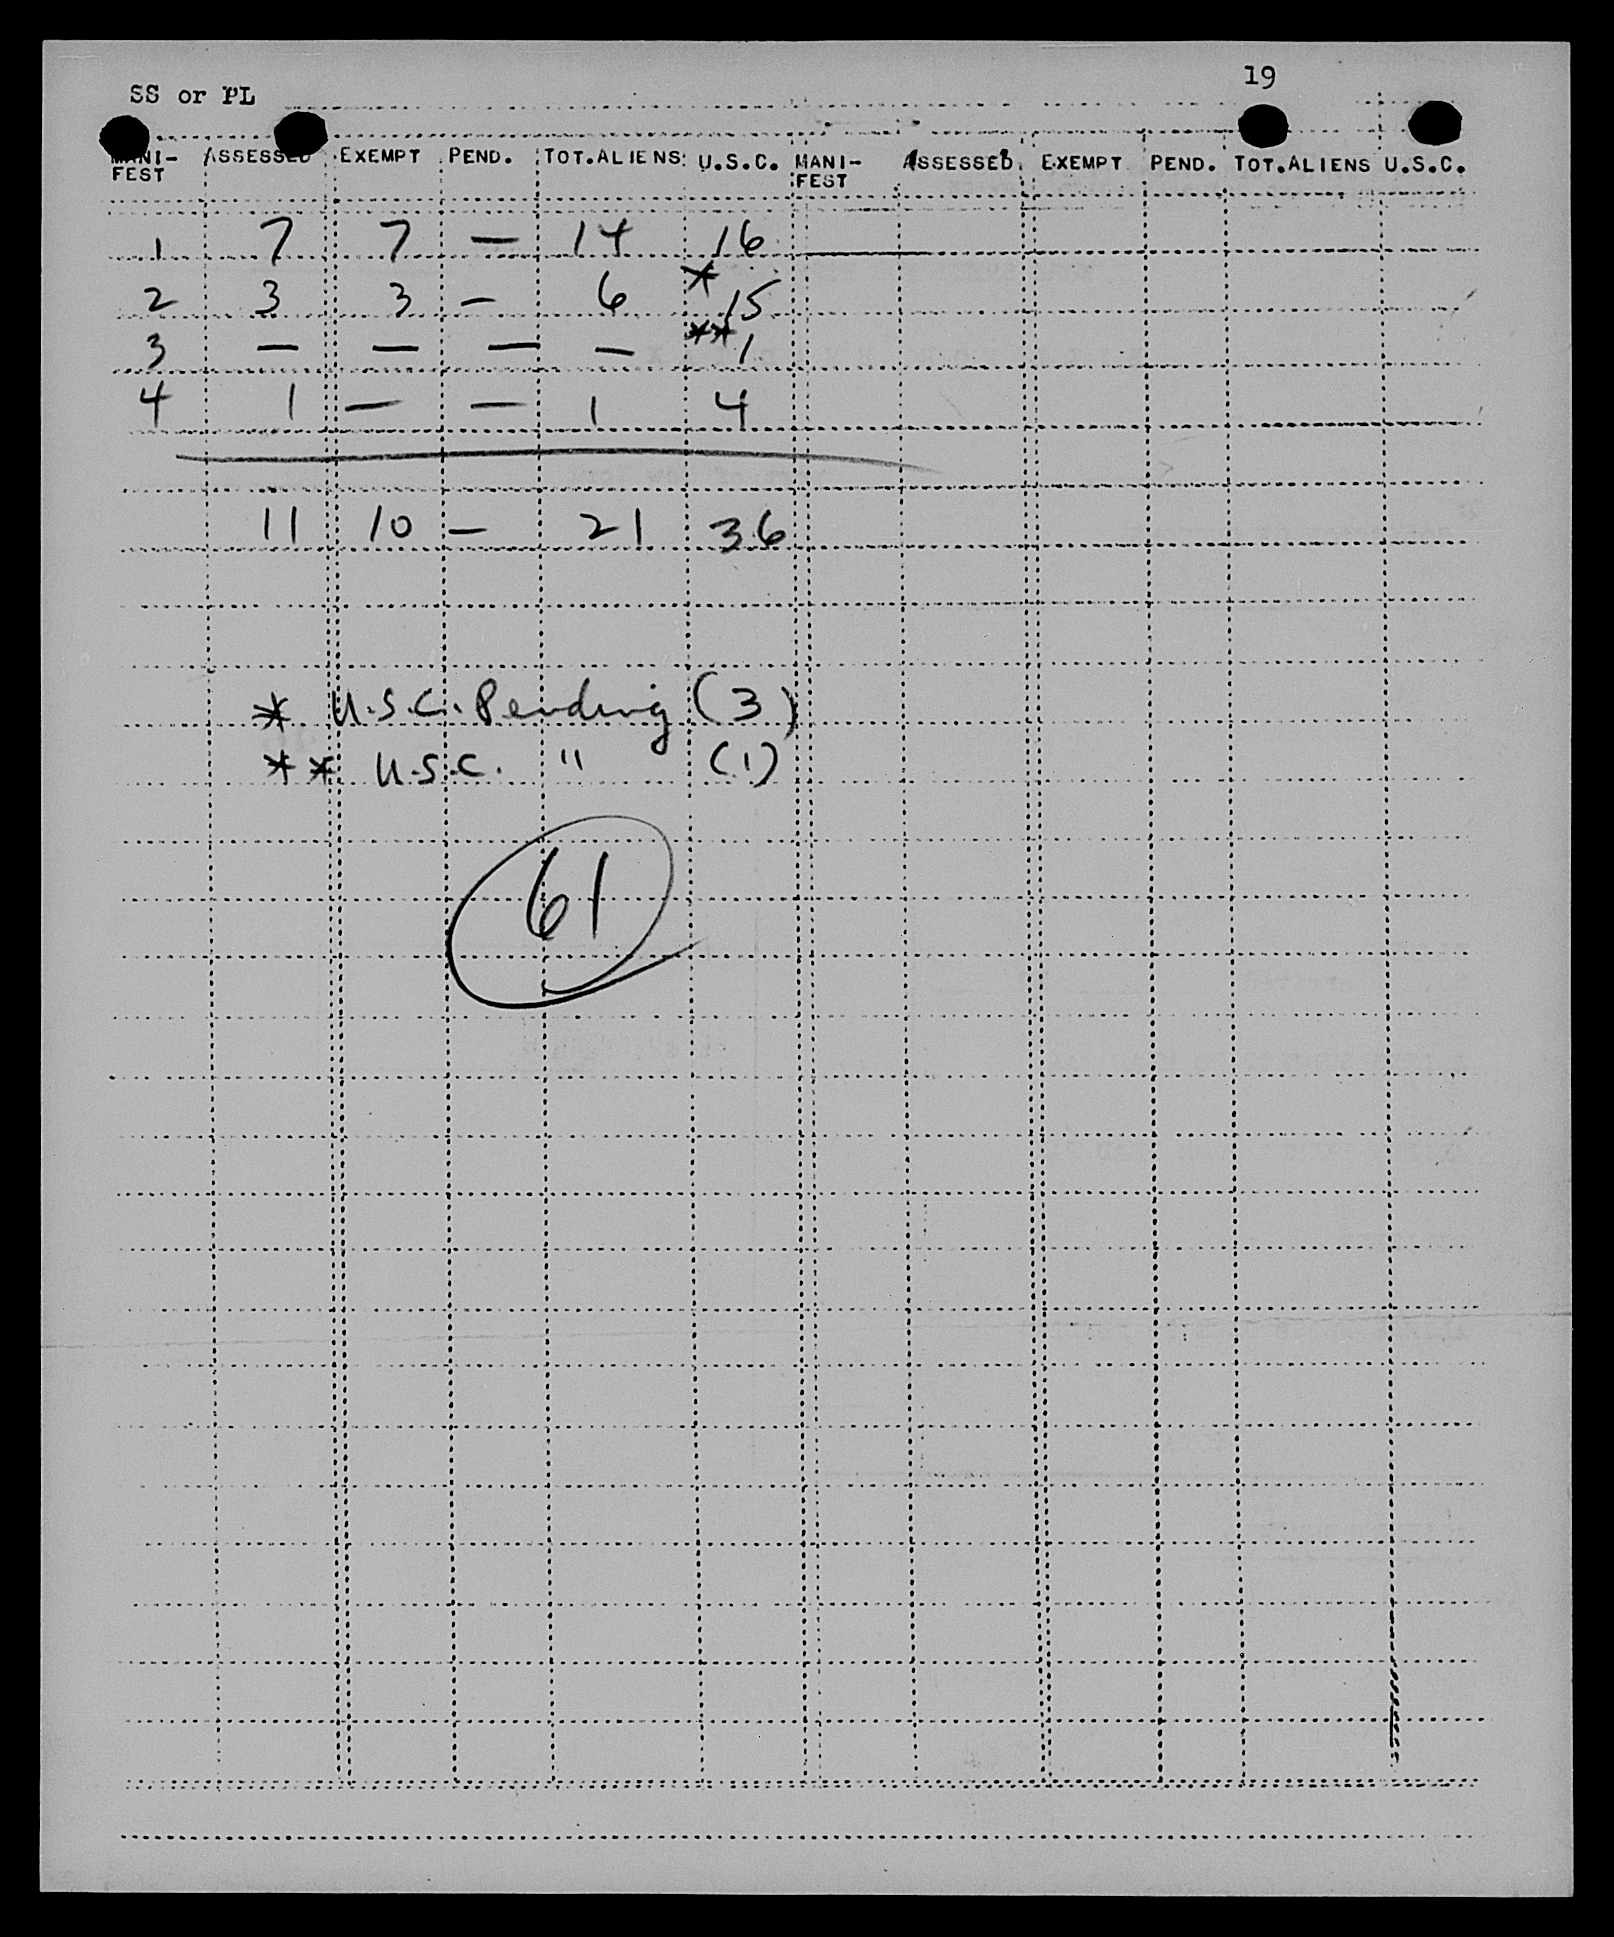 19
SS or PL
MANI-FEST ASSESSED EXEMPT PEND. TOT.ALIENS U.S.C. MANI-FEST ASSESSED EXEMPT PEND. TOT.ALIENS U.S.C.
1 7 7 — 14 16
2 3 3 — 6 *15
3 — — — — **1
4 1 — — 1 4
11 10 — 21 36
* U.S.C. Pending (3)
** U.S.C. " (1)
61